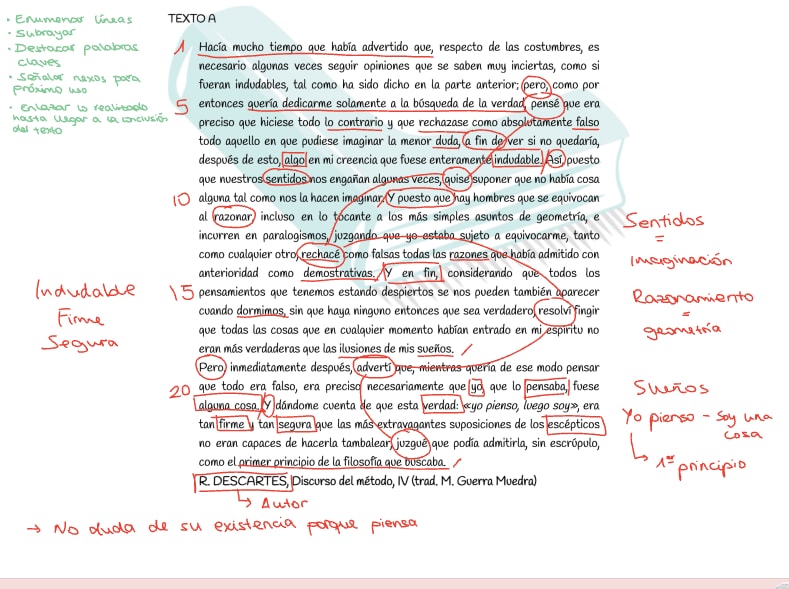 • Enumerar líneas
• Subrayar
• Destacar palabras
claves
• Señalar nexos para
próximo uso
• Enlazar lo realizado
hasta llegar a la conclusión
del texto
TEXTO A
1 Hacía mucho tiempo que había advertido que, respecto de las costumbres, es
necesario algunas veces seguir opiniones que se saben muy inciertas, como si
fueran indudables, tal como ha sido dicho en la parte anterior; pero, como por
5 entonces quería dedicarme solamente a la búsqueda de la verdad, pensé que era
preciso que hiciese todo lo contrario y que rechazase como absolutamente falso
todo aquello en que pudiese imaginar la menor duda, a fin de ver si no quedaría,
después de esto, algo en mi creencia que fuese enteramente indudable. Así, puesto
que nuestros sentidos nos engañan algunas veces, quise suponer que no había cosa
10 alguna tal como nos la hacen imaginar. Y puesto que hay hombres que se equivocan
al razonar, incluso en lo tocante a los más simples asuntos de geometría, e
incurren en paralogismos, juzgando que yo estaba sujeto a equivocarme, tanto
como cualquier otro, rechacé como falsas todas las razones que había admitido con
anterioridad como demostrativas. Y en fin, considerando que todos los
15 pensamientos que tenemos estando despiertos se nos pueden también aparecer
cuando dormimos, sin que haya ninguno entonces que sea verdadero, resolví fingir
que todas las cosas que en cualquier momento habían entrado en mi espíritu no
eran más verdaderas que las ilusiones de mis sueños.
Pero inmediatamente después, advertí que, mientras quería de ese modo pensar
20 que todo era falso, era preciso necesariamente que yo, que lo pensaba, fuese
alguna cosa. Y dándome cuenta de que esta verdad: «yo pienso, luego soy», era
tan firme y tan segura que las más extravagantes suposiciones de los escépticos
no eran capaces de hacerla tambalear, juzgué que podía admitirla, sin escrúpulo,
como el primer principio de la filosofía que buscaba.
R. DESCARTES, Discurso del método, IV (trad. M. Guerra Muedra)
↳ Autor
→ No duda de su existencia porque piensa
Indudable
Firme
Segura
Sentidos
=
imaginación
Razonamiento
=
geometría
Sueños
Yo pienso - soy una
cosa
↳ 1er principio